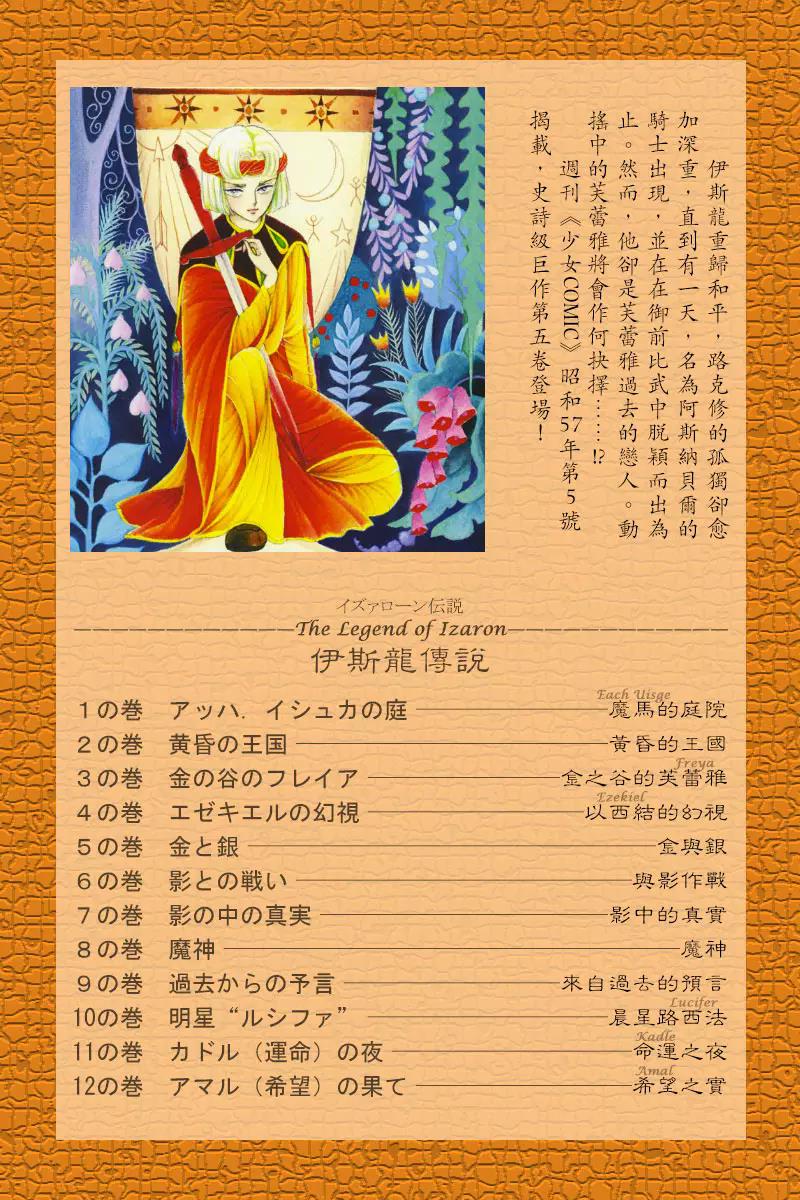 伊斯龍重歸和平，路克修的孤獨卻愈
加深重，直到有一天，名為阿斯納貝爾的
騎士出現，並在在御前比武中脫穎而出為
止。然而，他卻是芙蕾雅過去的戀人。動
搖中的芙蕾雅將會作何抉擇……!?
週刊《少女COMIC》昭和57年第5號
揭載，史詩級巨作第五卷登場！
イズァローン伝説
The Legend of Izaron
伊斯龍傳說
Each Uisge
1の巻 アッハ．イシュカの庭 魔馬的庭院
2の巻 黄昏の王国 黃昏的王國
Freya
3の巻 金の谷のフレイア 金之谷的芙蕾雅
Ezekiel
4の巻 エゼキエルの幻視 以西結的幻視
5の巻 金と銀 金與銀
6の巻 影との戦い 與影作戰
7の巻 影の中の真実 影中的真實
8の巻 魔神 魔神
9の巻 過去からの予言 來自過去的預言
Lucifer
10の巻 明星“ルシファ” 晨星路西法
Kadle
11の巻 カドル（運命）の夜 命運之夜
Amal
12の巻 アマル（希望）の果て 希望之實